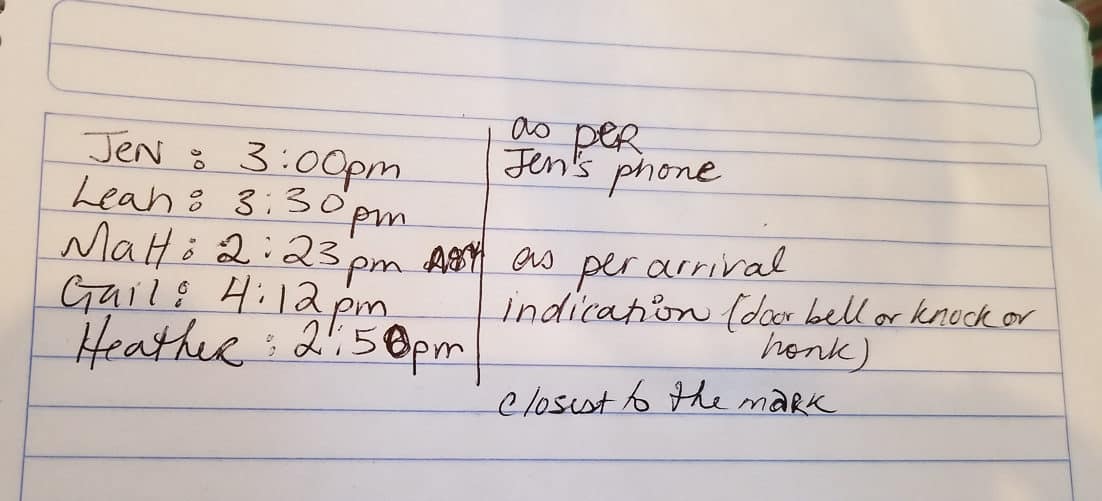 Jen : 3:00pm
Leah : 3:30pm
Matt : 2:23pm
Gail : 4:12pm
Heather : 2:50pm
as per
Jen's phone
as per arrival
indication (door bell or knock or
honk)
closest to the mark